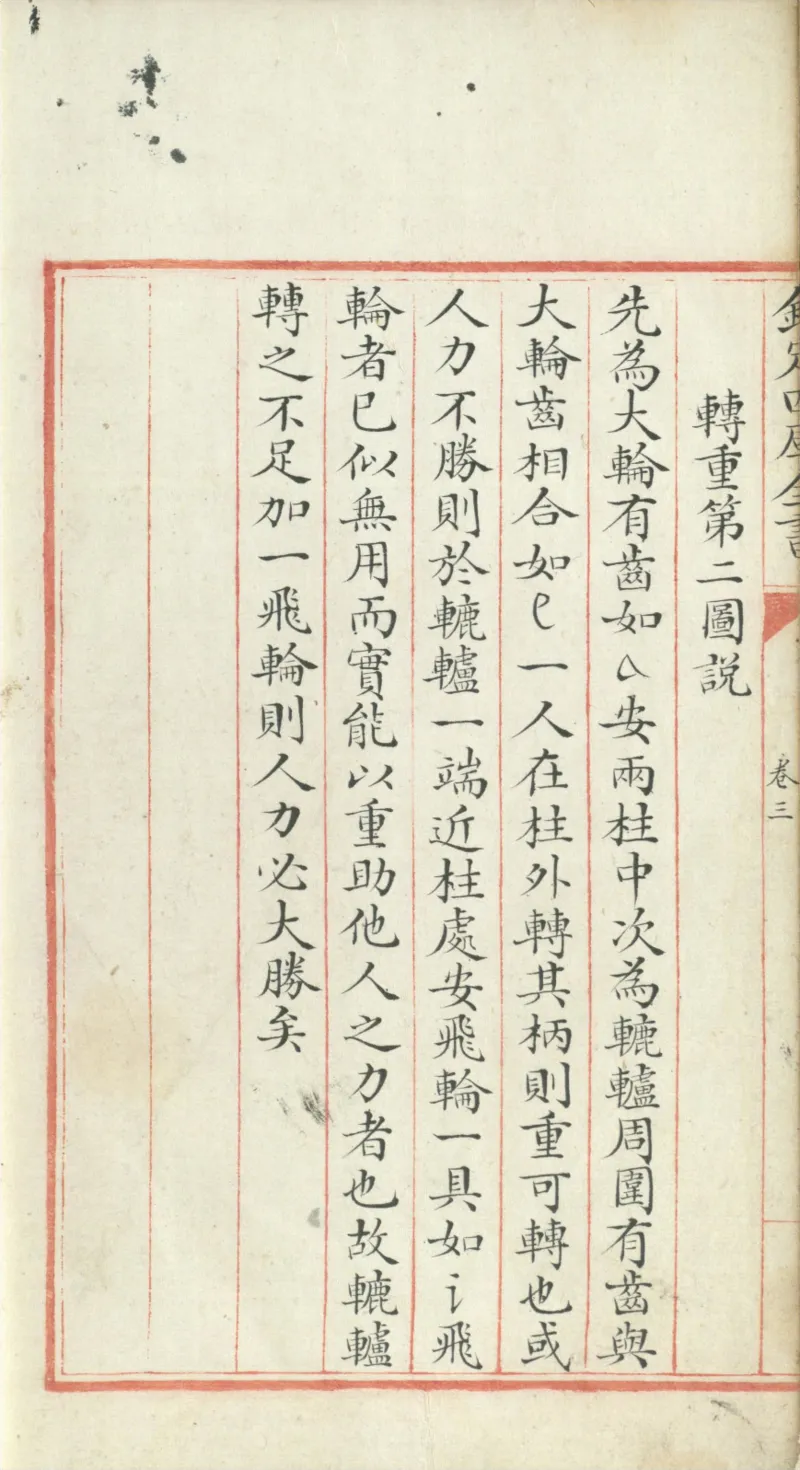 欽定四庫全書
卷三
轉重第二圖説
先為大輪有齒如ㄟ安兩柱中次為轆轤周圍有齒與
大輪齒相合如ᥱ一人在柱外轉其柄則重可轉也或
人力不勝則於轆轤一端近柱處安飛輪一具如讠飛
輪者已似無用而實能以重助他人之力者也故轆轤
轉之不足加一飛輪則人力必大勝矣